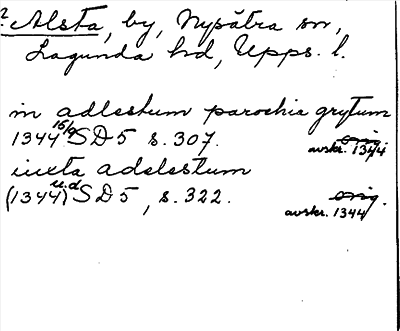 ? Alsta, by, Nysätra sn,
Lagunda hd, Upps. l.
in adlestum parochia grytum
1344 15/9 SD 5 s. 307. orig.
avskr. 1344
iuxta adelestum
(1344) u.d. SD 5, s. 322. orig.
avskr. 1344